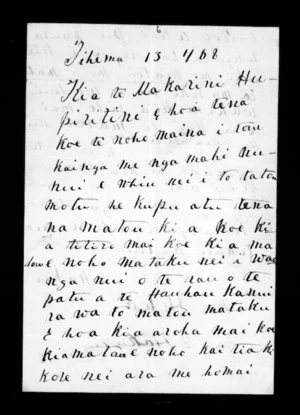 Tihema 13 468
Kia te Makarini Hu-
piritini E hoa tena
koe te noho maina i tau
kainga me nga mahi nu-
nui e whiu nei i to tatou
motu he kupu atu tena
na matou ki a koe ki
a titiro mai koe kia ma
tou e noho mataku nei i wae
nga nui o te rau o te
patu a te Hauhau Kanui
rawa to matou mataku
E hoa kia aroha mai koe
kiamatau e noho kai tia k
kore nei ara me homai